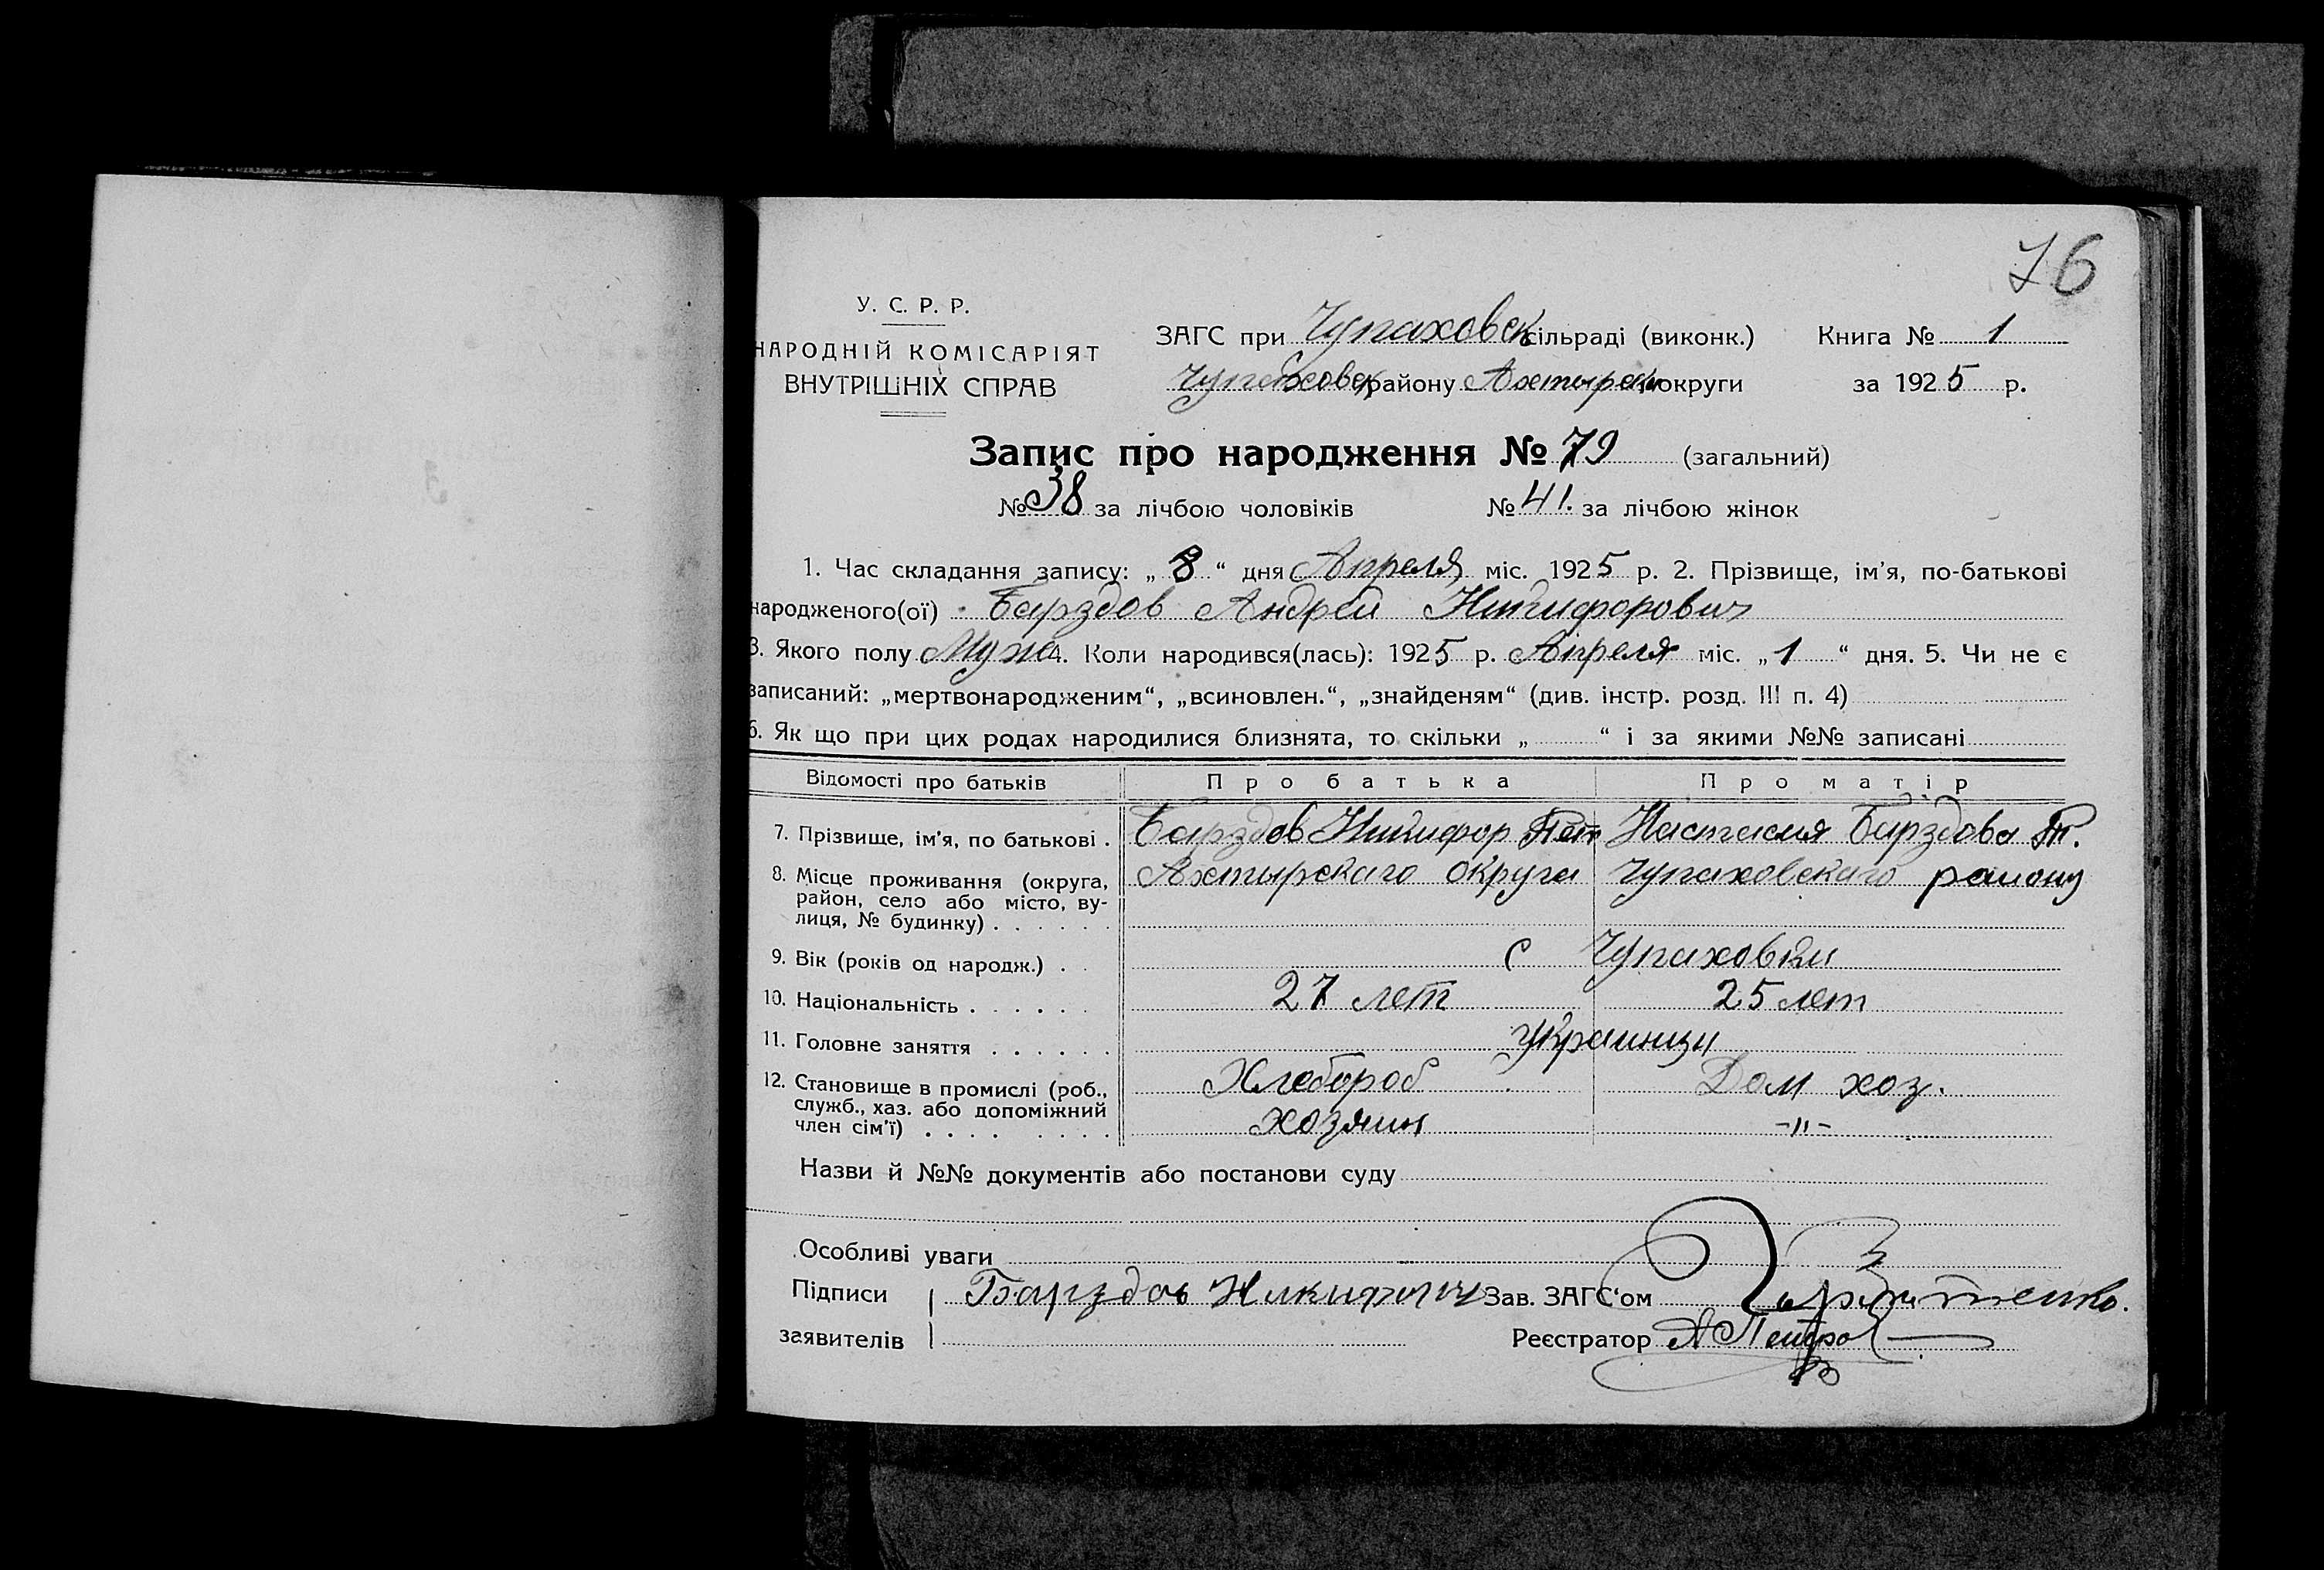 76
У. С. Р. Р.
НАРОДНІЙ КОМІСАРІЯТ
ВНУТРІШНІХ СПРАВ
ЗАГС при Чупаховск сільраді (виконк.) Книга № 1
Чупаховск району Ахтырск округи за 1925 р.
Запис про народження № 79 (загальний)
№ 38 за лічбою чоловіків № 41. за лічбою жінок
1. Час складання запису: „8“ дня Апреля міс. 1925 р. 2. Прізвище, ім’я, по-батькові
народженого(ої) Барздов Андрей Никифорович
3. Якого полу Мужс 4. Коли народився(лась): 1925 р. Апреля міс. „1“ дня. 5. Чи не є
записаний: „мертвонародженим“, „всиновлен.“, „знайденям“ (див. інстр. розд. III п. 4)
6. Як що при цих родах народилися близнята, то скільки „ “ і за якими №№ записані
Відомості про батьків Про батька Про матір
7. Прізвище, ім’я, по батькові . Барздов Никифор Пет Настасия Барздова
8. Місце проживання (округа, Ахтырскаго округа Чупаховскаго району
район, село або місто, ву-
лиця, № будинку) . . . . . .
9. Вік (років од народж.) . . с Чупаховки
10. Національність . . . . . . 27 лет 25 лет
11. Головне заняття . . . . . . Украинцы
12. Становище в промислі (роб., Хлебороб Дом хоз.
служб., хаз. або допоміжний
член сім’ї) . . . . . . . . хозяин -"-
Назви й №№ документів або постанови суду
Особливі уваги
Підписи Барздов Никифор Зав. ЗАГС‘ом
заявителів Реєстратор А Петров